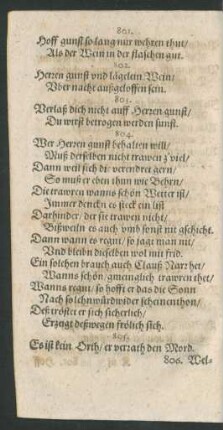 801.
Hoff gunst so lang nur wehren thut/
Als der Wein in der flaschen gut.
802.
Herren gunst vnd lägelein Wein/
Vber nacht außgeloffen sein.
803.
Verlaß dich nicht auff Herren gunst/
Du wirst betrogen werden sunst.
804.
Wer Herren gunst behalten will/
Muß derselben nicht trawen z'viel/
Dann weil sich di' verendret gern/
So muß er eben thun wie
Die trawen wanns schön Wetter ist/
Immer dencken es steck ein list
Darhinder/ der sie trawen nicht/
Bißweiln es auch vmb sonst nit gschicht.
Dann wann es regnt/ so sagt man nit/
Vnd bleibn dieselben wol mit frid.
Ein solchen brauch auch Clauß Narr het/
Wanns schön/ gmeinglich trawren thet/
Wanns regnt/ so hofft er das die Sonn
Nach so wider scheinen thon/
Deß tröstet er sich sicherlich/
Erzeigt deßwegen frölich sich.
805.
Es ist kein Orth/ er verrath den Mord.
806. Wel-